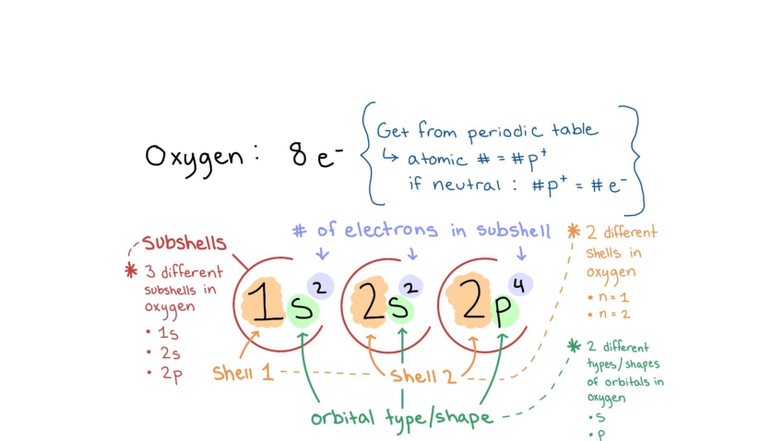 Get from periodic table
Oxygen: 8 e⁻
↳ atomic # = #p⁺
if neutral: #p⁺ = #e⁻
# of electrons in subshell
Subshells
* 3 different
subshells in
oxygen
• 1s
• 2s
• 2p
1s² 2s² 2p⁴
Shell 1
Shell 2
orbital type/shape
* 2 different
shells in
oxygen
• n = 1
• n = 2
* 2 different
types/shapes
of orbitals in
oxygen
• s
• p